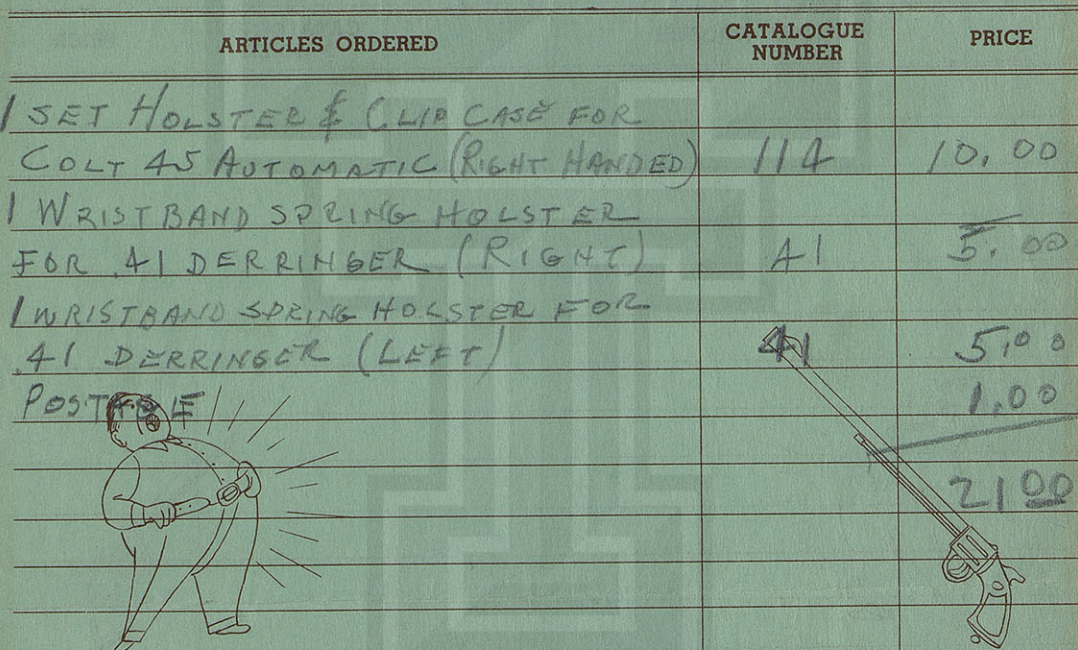 ARTICLES ORDERED CATALOGUE NUMBER PRICE
1 SET HOLSTER & CLIP CASE FOR
COLT 45 AUTOMATIC (RIGHT HANDED) 114 10.00
1 WRISTBAND SPRING HOLSTER
FOR .41 DERRINGER (RIGHT) 41 5.00
1 WRISTBAND SPRING HOLSTER FOR
.41 DERRINGER (LEFT) 41 5.00
POSTAGE 1.00
21 00